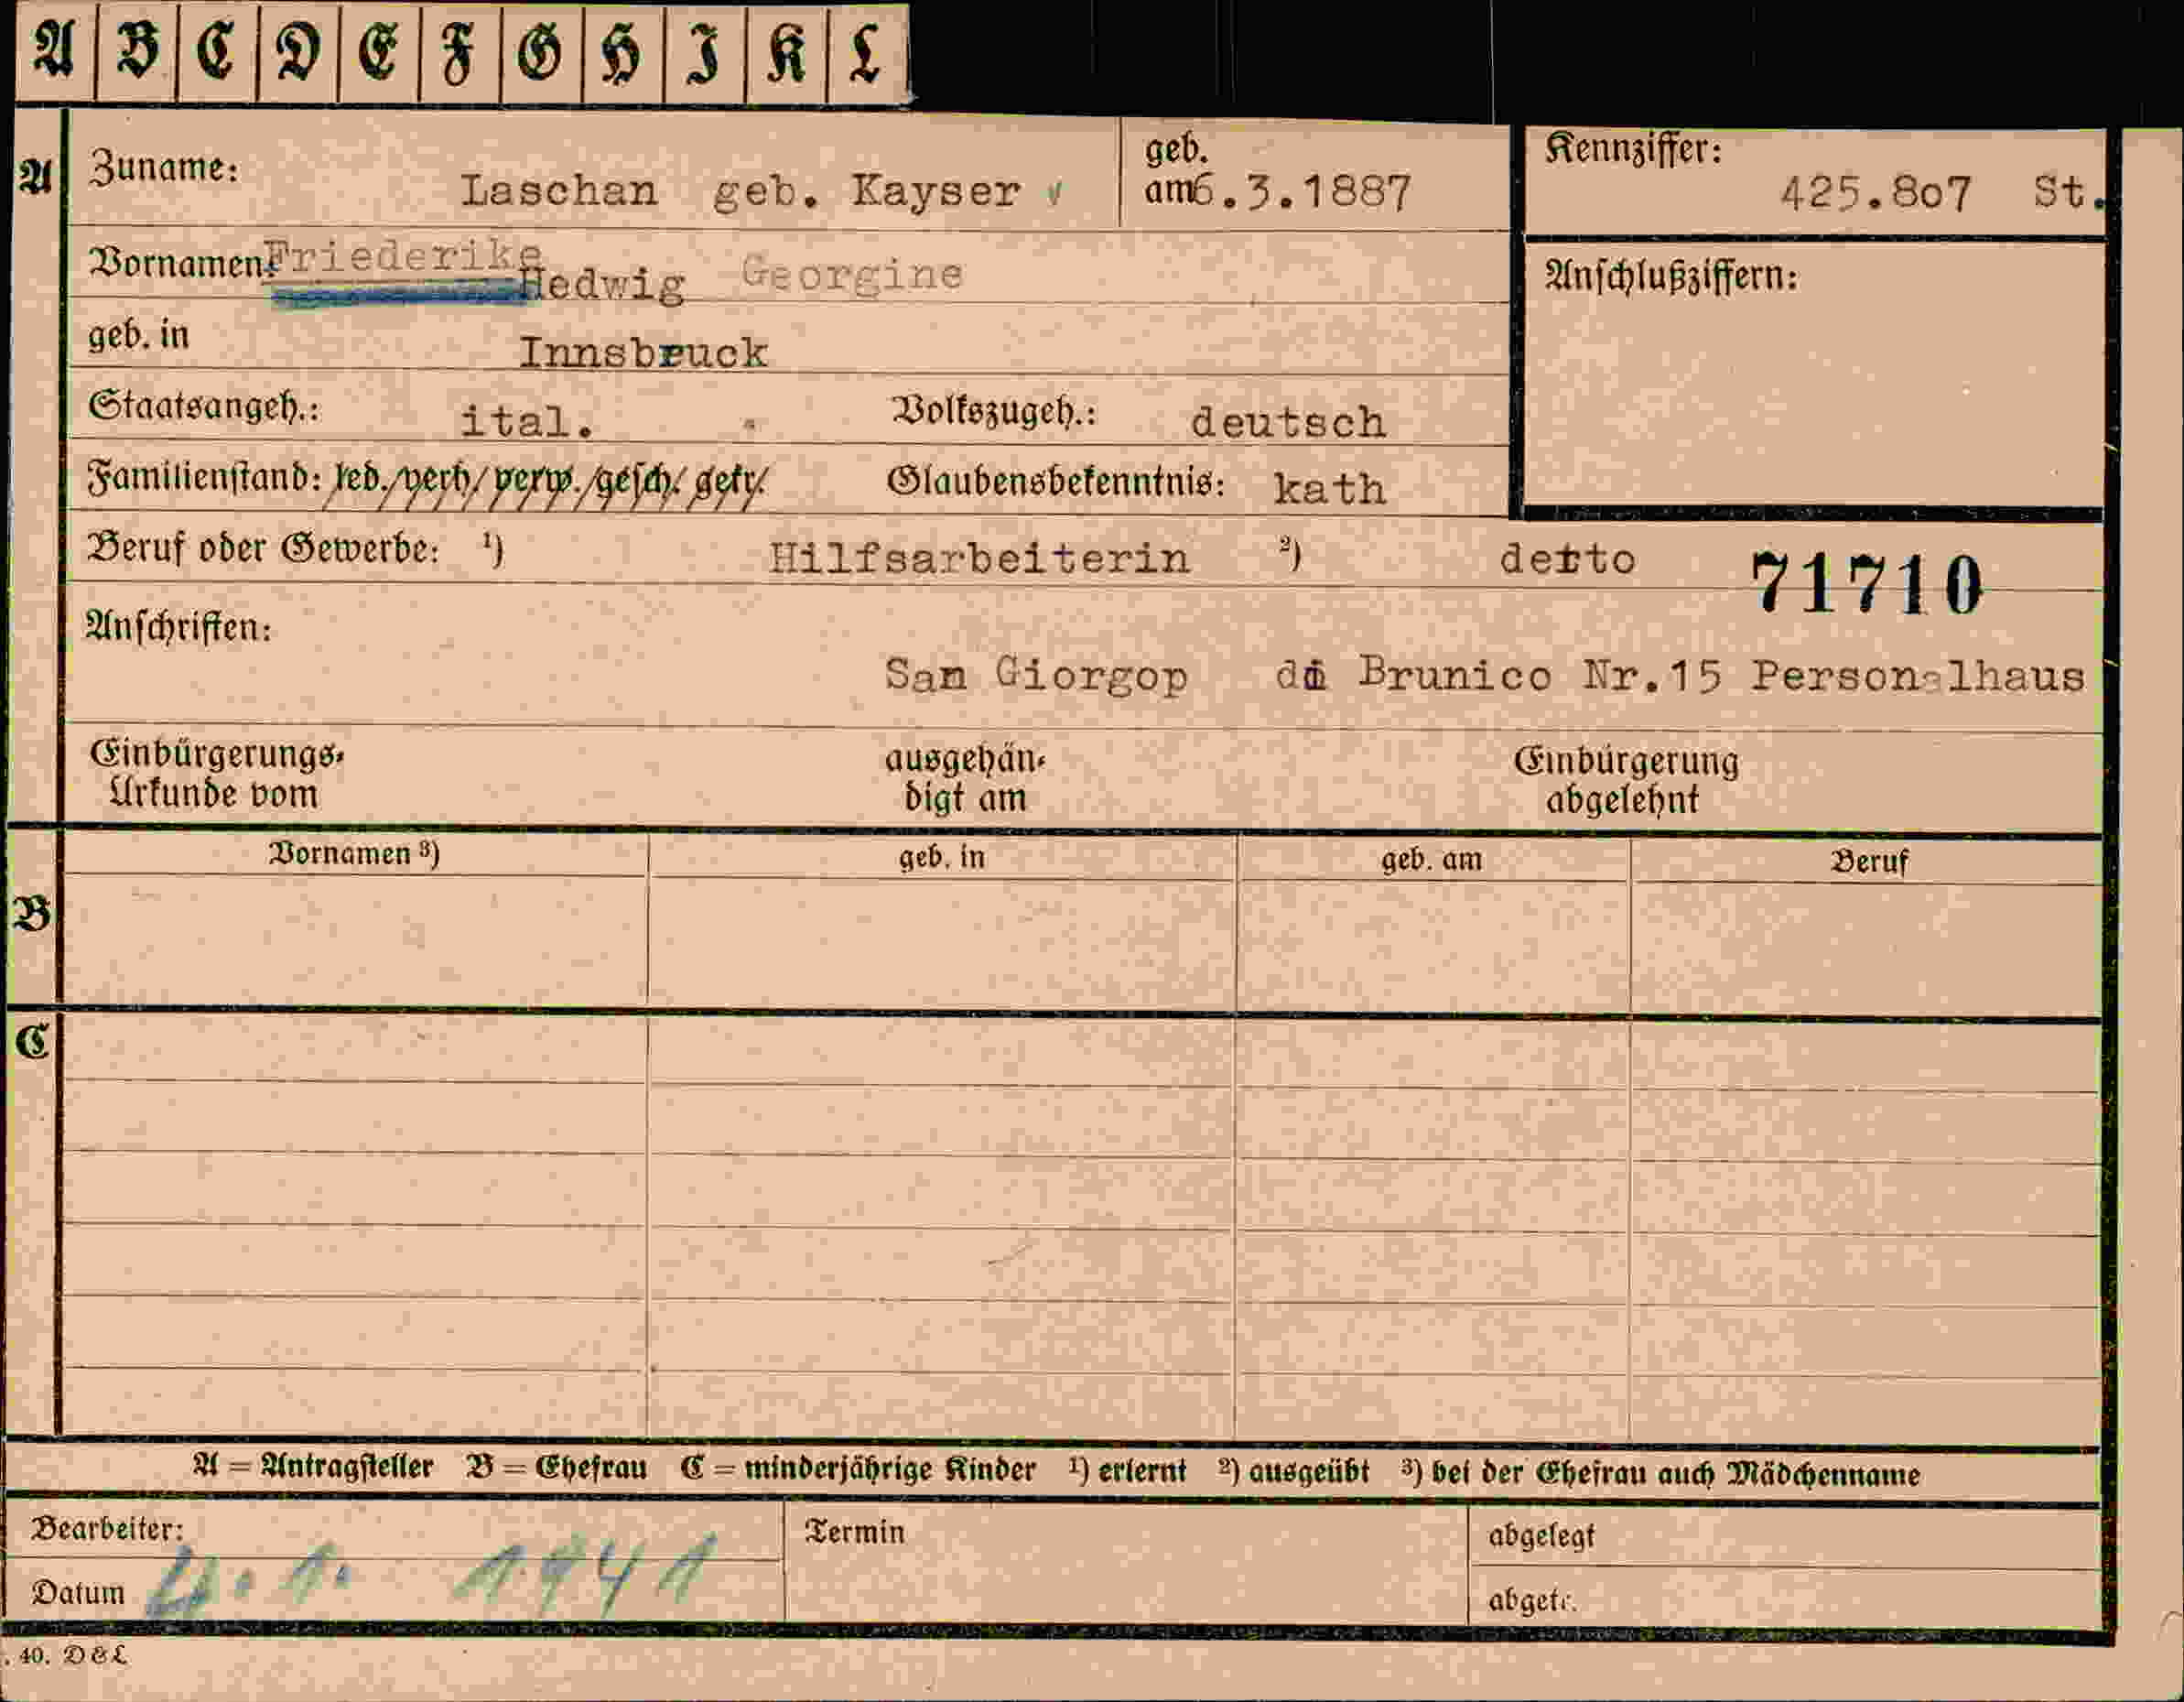 A B C D E F G H I K L
A Zuname: Laschan geb. Kayser geb. am 6.3.1887 Kennziffer: 425.8o7 St.
Vornamen: Friederike Hedwig Georgine Anschlußziffern:
geb. in Innsbruck
Staatsangeh.: ital. Volkszugeh.: deutsch
Familienstand: led./verh/verw./gesch/getr. Glaubensbekenntnis: kath
Beruf oder Gewerbe: ¹) Hilfsarbeiterin ²) detto 71710
Anschriften:
San Giorgop di Brunico Nr.15 Personalhaus
Einbürgerungs- ausgehän- Einbürgerung
Urkunde vom digt am abgelehnt
Vornamen ³) geb. in geb. am Beruf
B
C
A = Antragsteller B = Ehefrau C = minderjährige Kinder ¹) erlernt ²) ausgeübt ³) bei der Ehefrau auch Mädchenname
Bearbeiter: Termin abgelegt
Datum 4. 1. 1941 abgetr.
. 40. D & L